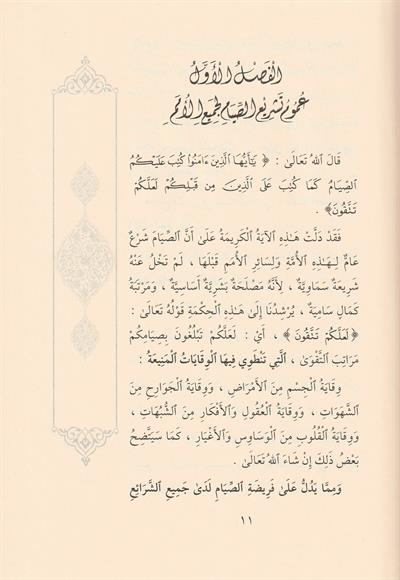 الْفَصْلُ الْأَوَّلُ
عُمُومُ تَشْرِيعِ الصِّيَامِ لِجَمِيعِ الْأُمَمِ
قَالَ اللهُ تَعَالَىٰ : ﴿ يَٰٓأَيُّهَا ٱلَّذِينَ ءَامَنُوا۟ كُتِبَ عَلَيْكُمُ
ٱلصِّيَامُ كَمَا كُتِبَ عَلَى ٱلَّذِينَ مِن قَبْلِكُمْ لَعَلَّكُمْ
تَتَّقُونَ﴾ .
فَقَدْ دَلَّتْ هَـٰذِهِ ٱلآيَةُ ٱلْكَرِيمَةُ عَلَىٰ أَنَّ ٱلصِّيَامَ شَرْعٌ
عَامٌّ لِـهَـٰذِهِ ٱلأُمَّةِ وَلِسَائِرِ ٱلأُمَمِ قَبْلَهَا ، لَمْ تَخْلُ عَنْهُ
شَرِيعَةٌ سَمَاوِيَّةٌ ، لِأَنَّهُ مَصْلَحَةٌ بَشَرِيَّةٌ أَسَاسِيَّةٌ ، وَمَرْتَبَةُ
كَمَالٍ سَامِيَةٌ ، يُرْشِدُنَا إِلَىٰ هَـٰذِهِ ٱلْحِكْمَةِ قَوْلُهُ تَعَالَىٰ :
﴿لَعَلَّكُمْ تَتَّقُونَ﴾ ، أَيْ : لَعَلَّكُمْ تَبْلُغُونَ بِصِيَامِكُمْ
مَرَاتِبَ ٱلتَّقْوَىٰ ، ٱلَّتِي تَنْطَوِي فِيهَا ٱلْوِقَايَاتُ ٱلْمَنِيعَةُ :
وِقَايَةُ ٱلْجِسْمِ مِنَ ٱلأَمْرَاضِ ، وَوِقَايَةُ ٱلْجَوَارِحِ مِنَ
ٱلشَّهَوَاتِ ، وَوِقَايَةُ ٱلْعُقُولِ وَٱلأَفْكَارِ مِنَ ٱلشُّبُهَاتِ ،
وَوِقَايَةُ ٱلْقُلُوبِ مِنَ ٱلْوَسَاوِسِ وَٱلأَغْيَارِ ، كَمَا سَيَتَّضِحُ
بَعْضُ ذَلِكَ إِنْ شَاءَ ٱللهُ تَعَالَىٰ .
وَمِمَّا يَدُلُّ عَلَىٰ فَرِيضَةِ ٱلصِّيَامِ لَدَىٰ جَمِيعِ ٱلشَّرَائِعِ
١١